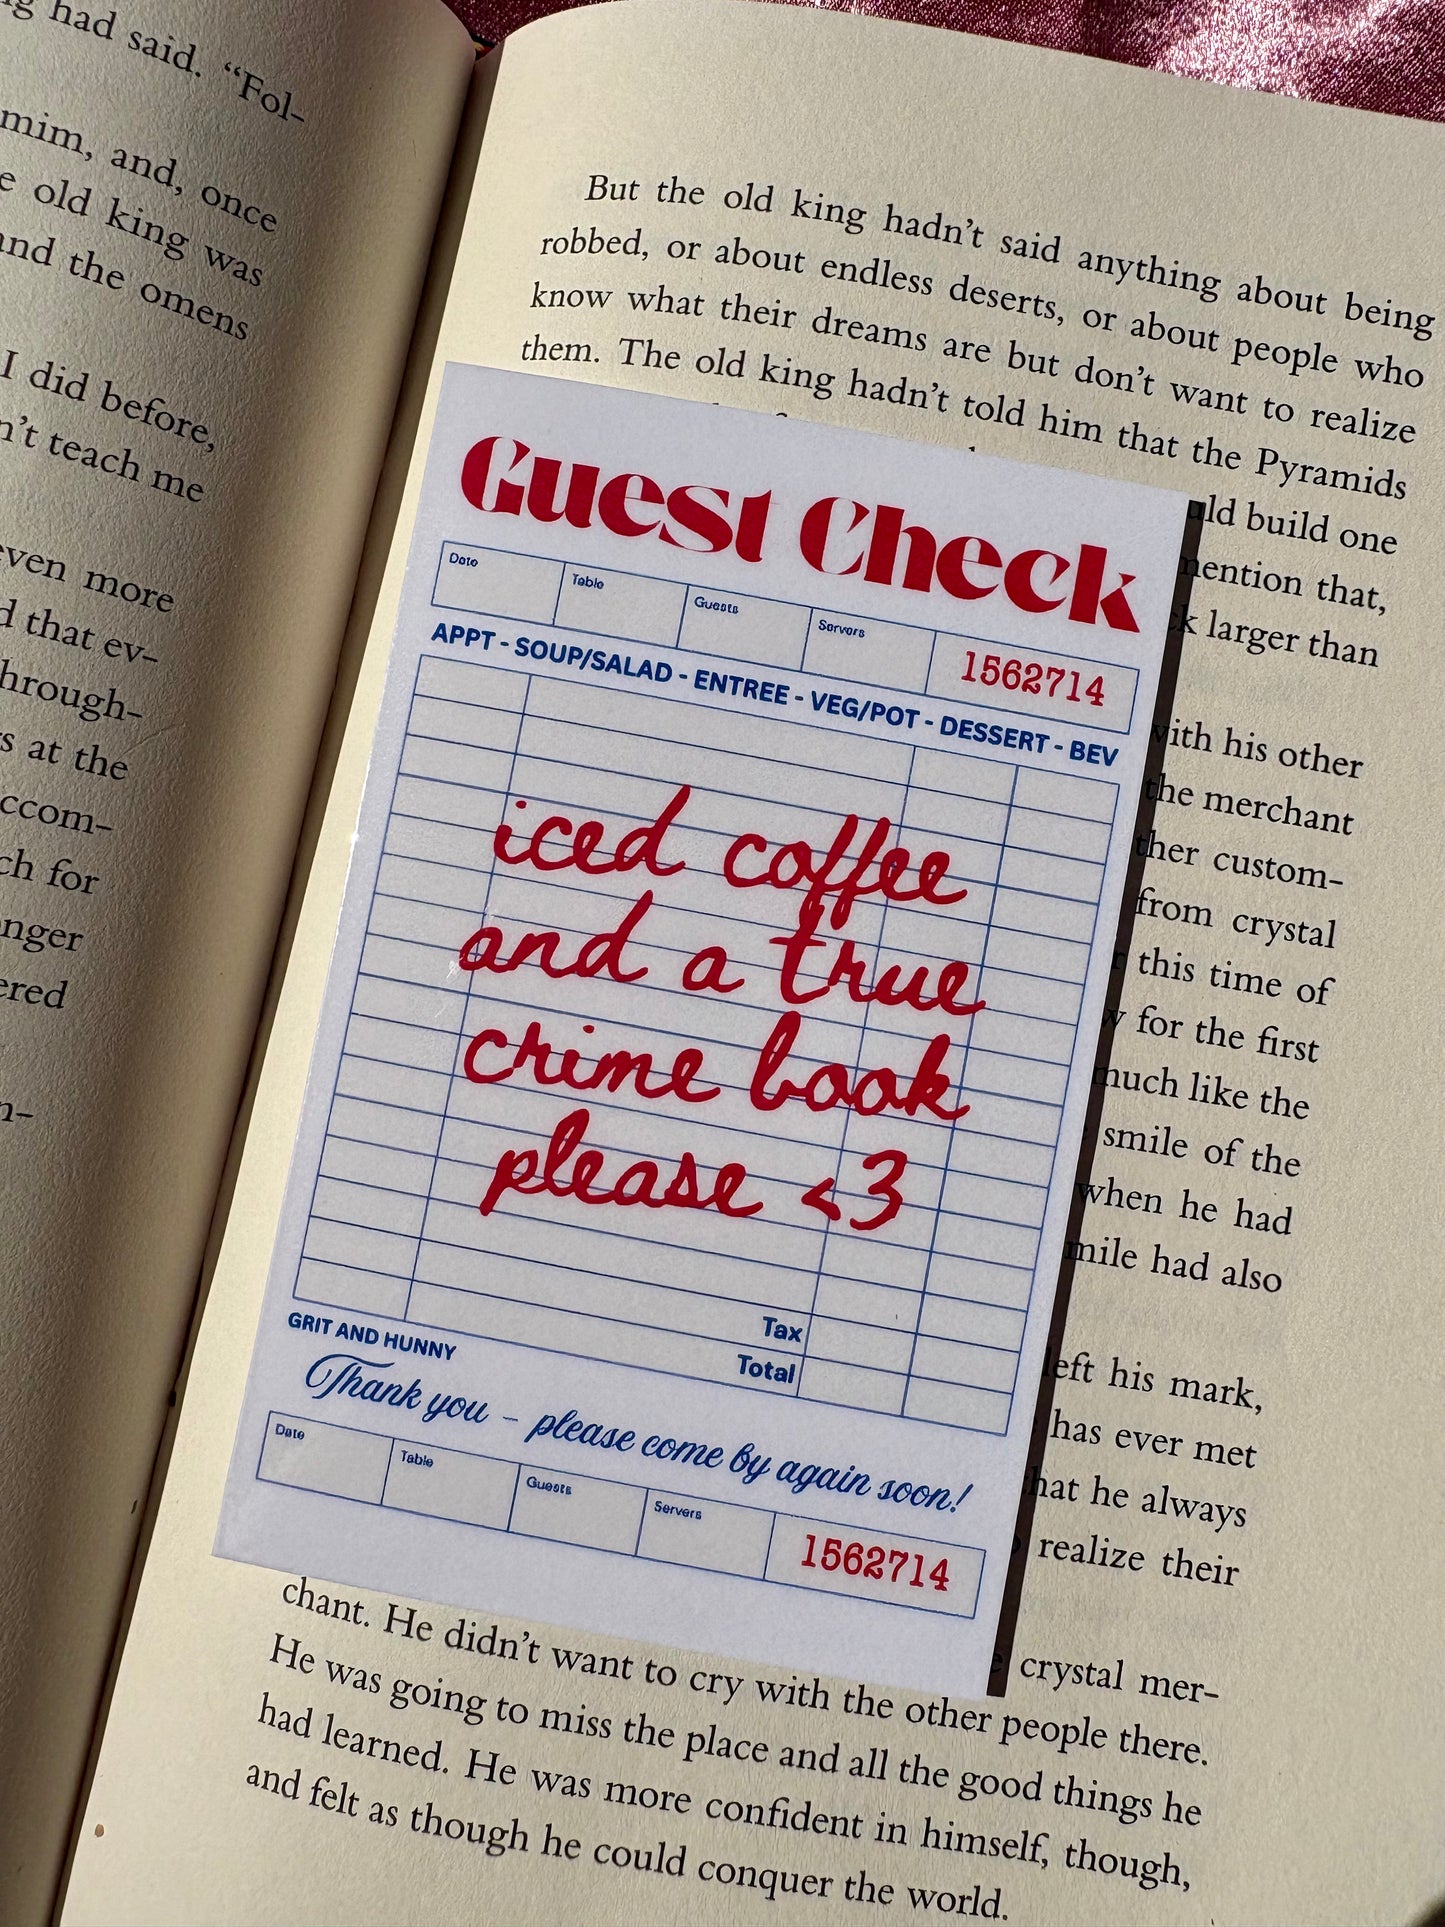 g had said. “Fol-
mim, and, once
e old king was
and the omens
I did before,
n’t teach me
even more
d that ev-
hrough-
s at the
ccom-
ch for
nger
ered
n-
But the old king hadn’t said anything about being
robbed, or about endless deserts, or about people who
know what their dreams are but don’t want to realize
them. The old king hadn’t told him that the Pyramids
uld build one
mention that,
k larger than
with his other
the merchant
ther custom-
from crystal
this time of
for the first
much like the
smile of the
when he had
mile had also
left his mark,
has ever met
that he always
realize their
crystal mer-
chant. He didn’t want to cry with the other people there.
He was going to miss the place and all the good things he
had learned. He was more confident in himself, though,
and felt as though he could conquer the world.
Guest Check
Date Table Guests Servers 1562714
APPT - SOUP/SALAD - ENTREE - VEG/POT - DESSERT - BEV
iced coffee
and a true
crime book
please <3
Tax
Total
GRIT AND HUNNY
Thank you - please come by again soon!
Date Table Guests Servers 1562714